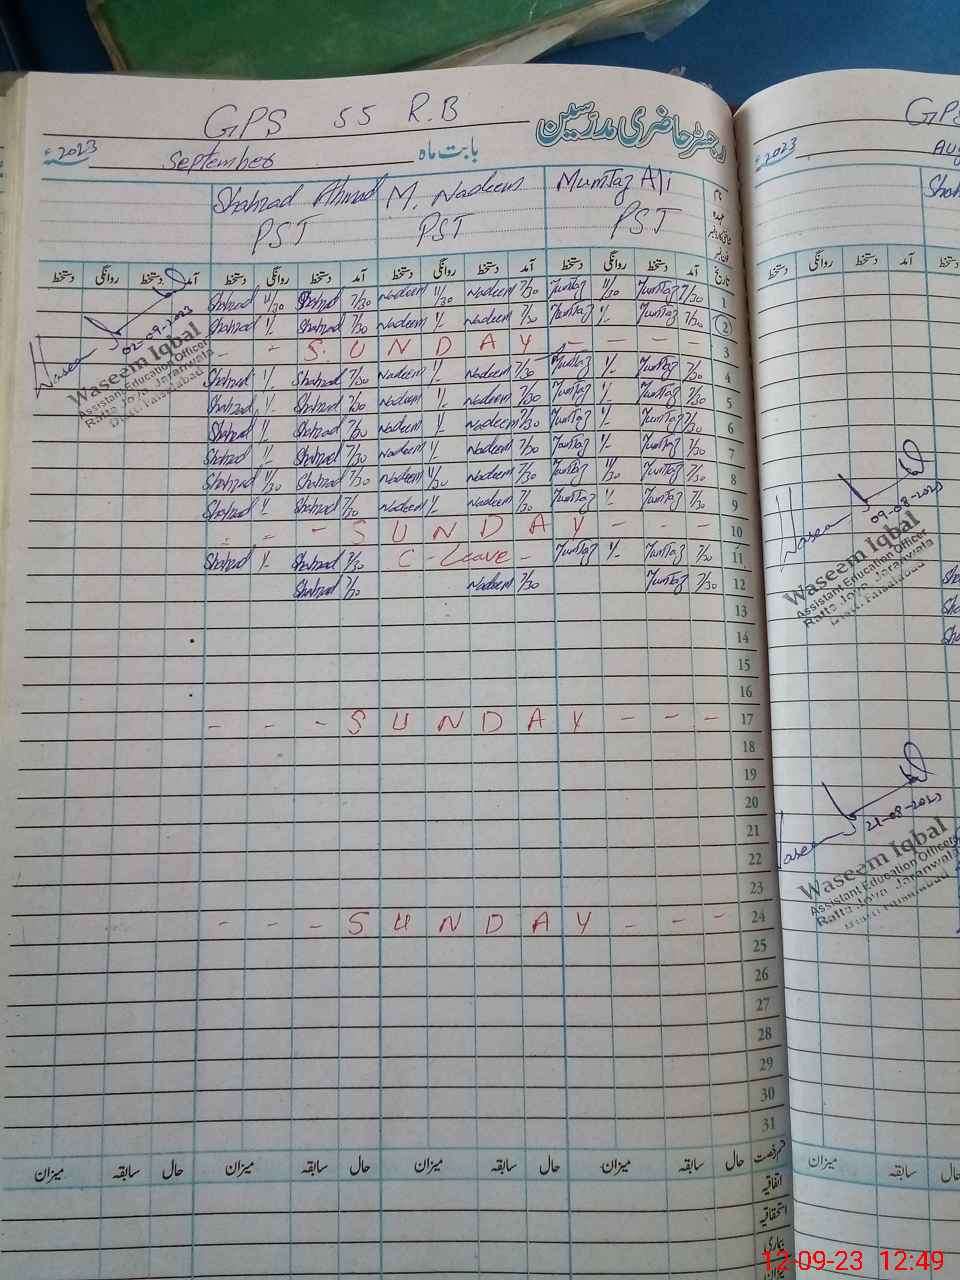 GPS 55 R.B
رجسٹر حاضری مدرسین
بابت ماہ September 2023ء
نام Mumtaz Ali M. Nadeem Shahzad Ahmad
عہدہ PST PST PST
تاریخ آمد دستخط روانگی دستخط آمد دستخط روانگی دستخط آمد دستخط روانگی دستخط آمد دستخط روانگی دستخط
1 7/30 Mumtaz 11/30 Mumtaz 7/30 Nadeem 11/30 Nadeem 7/30 Shahzad 11/30 Shahzad
2 7/30 Mumtaz 1/- Mumtaz 7/30 Nadeem 1/- Nadeem 7/30 Shahzad 1/- Shahzad
3 - - S U N D A Y - - - -
4 7/30 Mumtaz 1/- Mumtaz 7/30 Nadeem 1/- Nadeem 7/30 Shahzad 1/- Shahzad
5 7/30 Mumtaz 1/- Mumtaz 7/30 Nadeem 1/- Nadeem 7/30 Shahzad 1/- Shahzad
6 7/30 Mumtaz 1/- Mumtaz 7/30 Nadeem 1/- Nadeem 7/30 Shahzad 1/- Shahzad
7 7/30 Mumtaz 1/- Mumtaz 7/30 Nadeem 1/- Nadeem 7/30 Shahzad 1/- Shahzad
8 7/30 Mumtaz 11/30 Mumtaz 7/30 Nadeem 11/30 Nadeem 7/30 Shahzad 11/30 Shahzad
9 7/30 Mumtaz 1/- Mumtaz 7/30 Nadeem 1/- Nadeem 7/30 Shahzad 1/- Shahzad
10 - - - S U N D A Y - - -
11 7/30 Mumtaz 1/- Mumtaz C - Leave - 7/30 Shahzad 1/- Shahzad
12 7/30 Mumtaz 7/30 Nadeem 7/30 Shahzad
13
14
15
16
17 - - - S U N D A Y - - -
18
19
20
21
22
23
24 - - - S U N D A Y - - -
25
26
27
28
29
30
31
قسم رخصت حال سابقہ میزان حال سابقہ میزان حال سابقہ میزان حال سابقہ میزان
اتفاقیہ
استحقاقیہ
بیماری
میزان
02-09-2023
Waseem Iqbal
Assistant Education Officer
Ratta Joya Jaranwala
Distt. Faisalabad
GPS
2023ء
Aug
Shah
دستخط روانگی دستخط آمد
09-08-2023
Waseem Iqbal
Assistant Education Officer
Ratta Joya Jaranwala
Distt. Faisalabad
Sha
Sha
Sha
21-08-2023
Waseem Iqbal
Assistant Education Officer
Ratta Joya Jaranwala
Distt. Faisalabad
میزان سابقہ حال
12-09-23 12:49